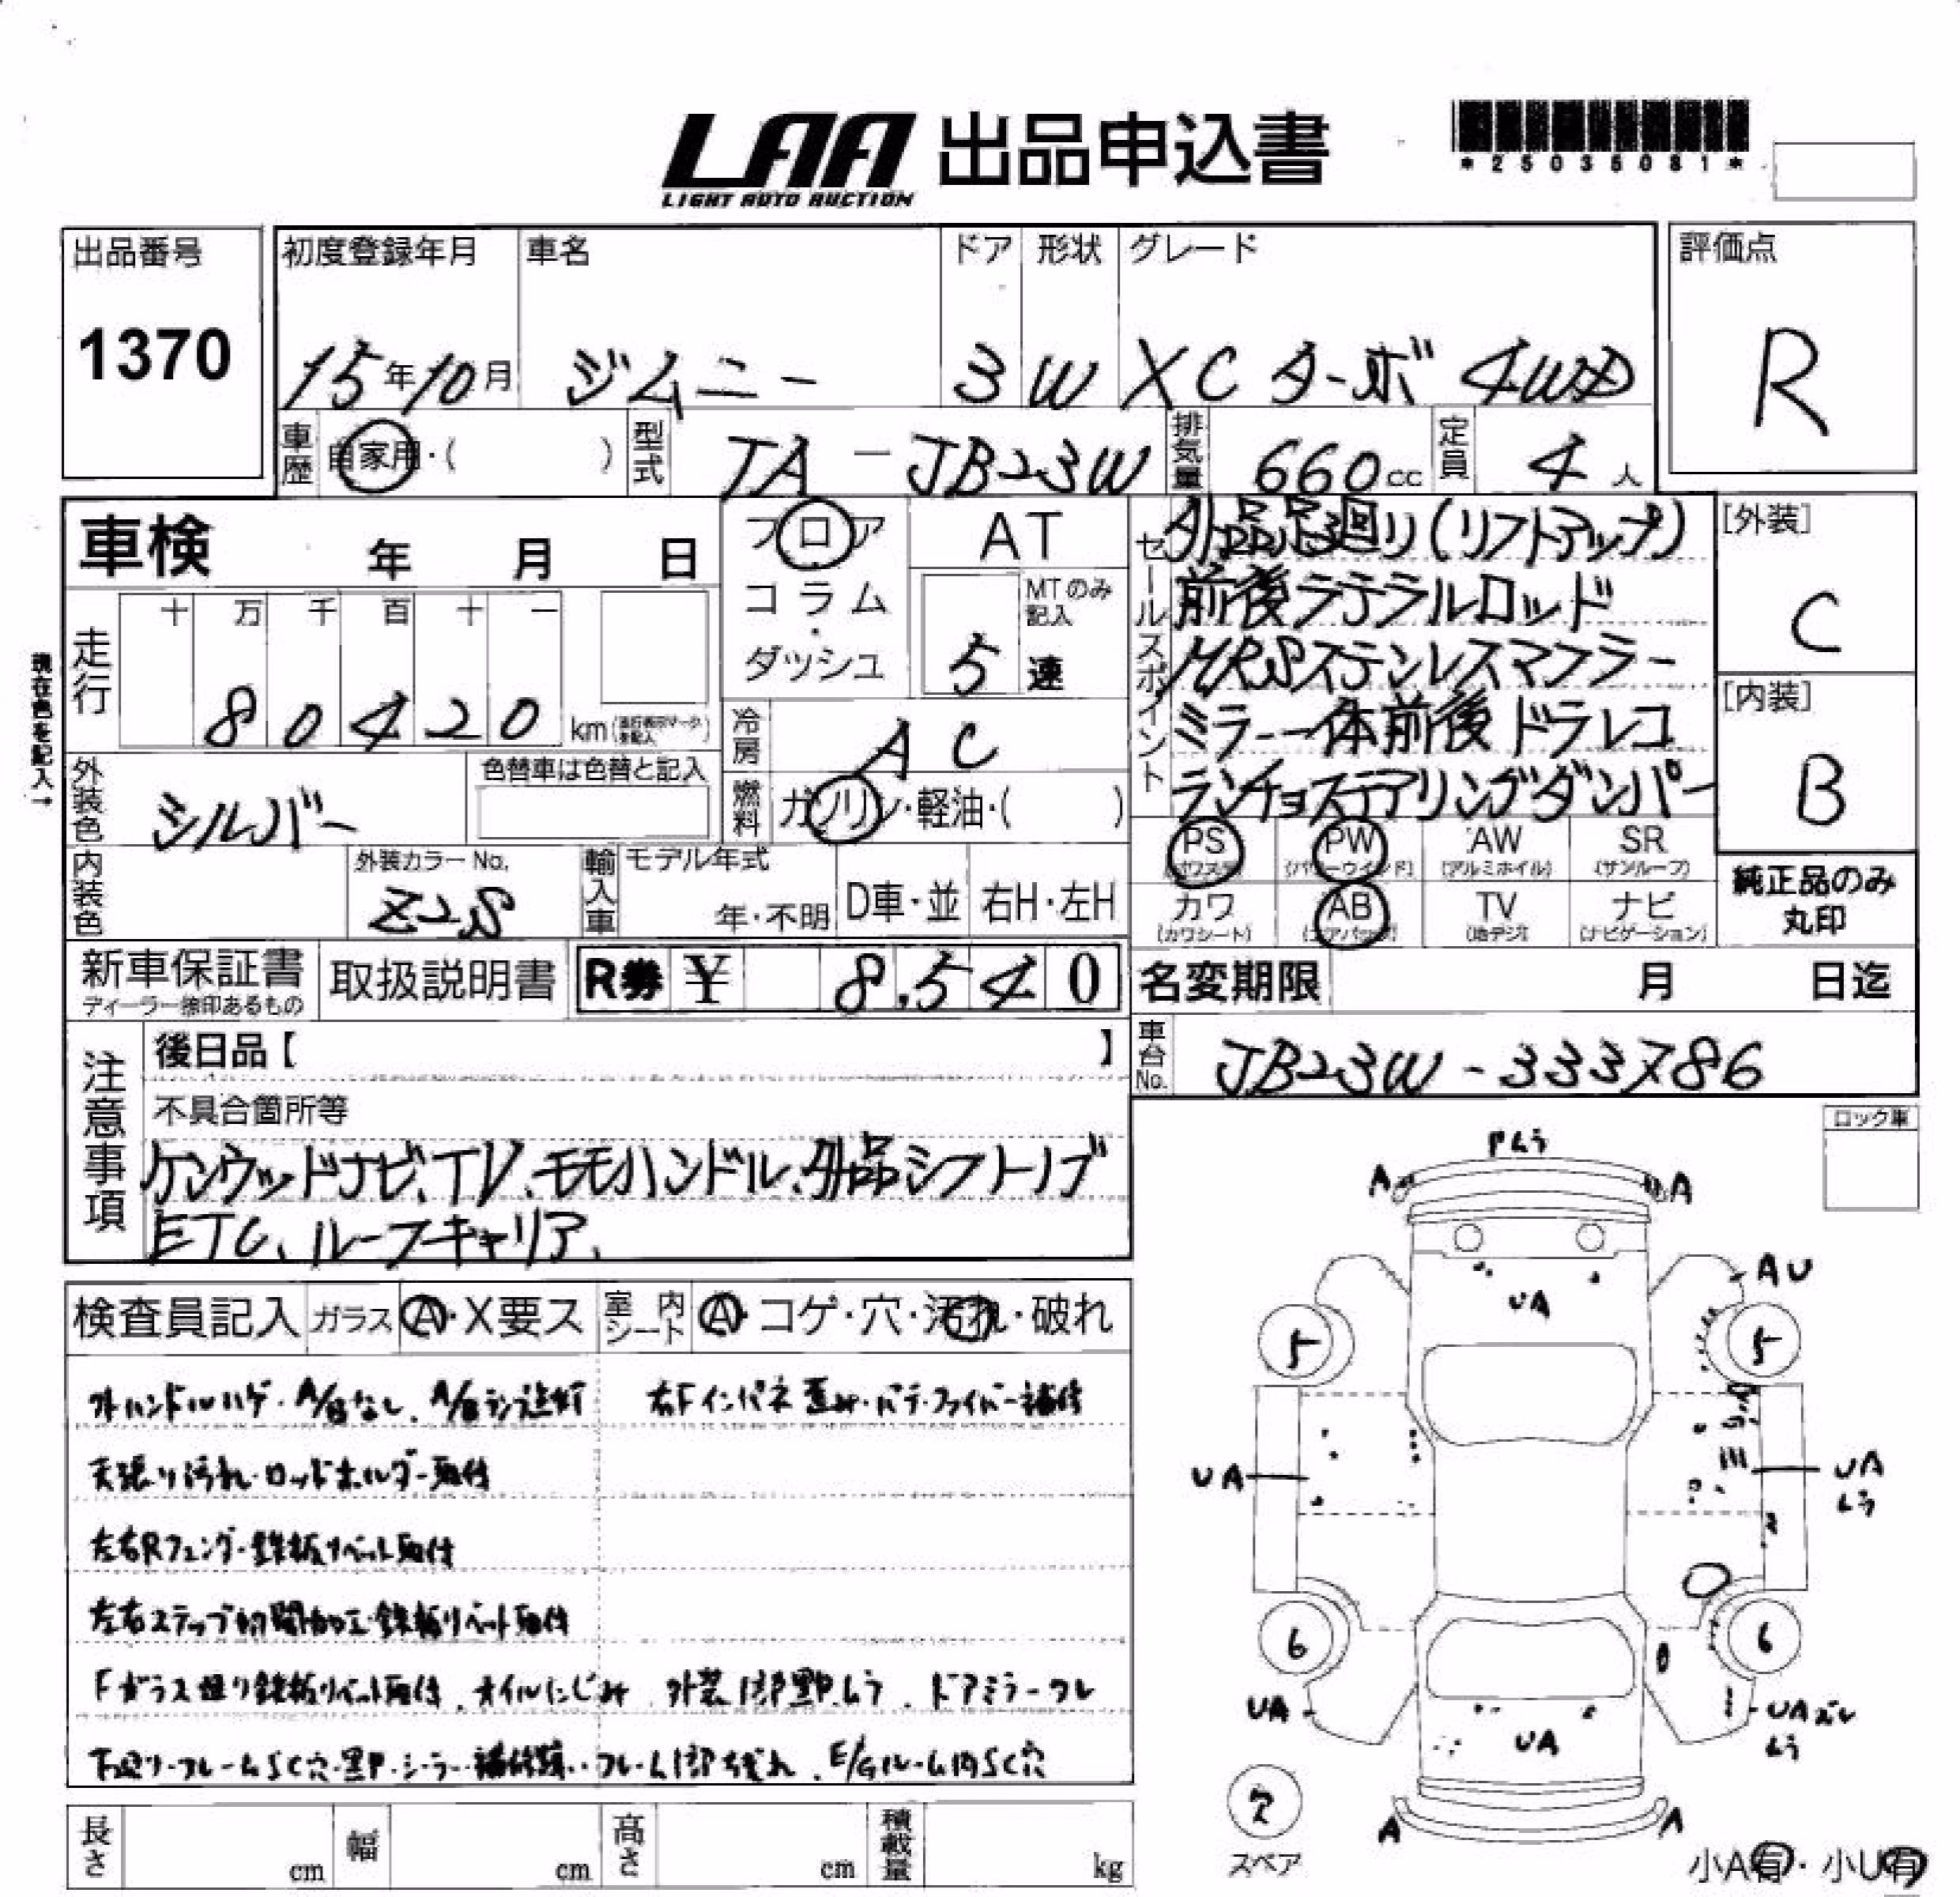 LAA 出品申込書
LIGHT AUTO AUCTION
*25036081*
出品番号 初度登録年月 車名 ドア 形状 グレード 評価点
1370 15年10月 ジムニー 3 W XC ターボ 4WD R
車歴 自家用・( ) 型式 TA-JB23W 排気量 660cc 定員 4人
車検 年 月 日
フロア AT
コラム・ダッシュ
MTのみ記入
5速
走行 十 万 千 百 十 一
80420 km
現在色を記入→
冷房 AC
外装色 シルバー 色替車は色替と記入
燃料 ガソリン・軽油・( )
内装色 外装カラーNo. Z2S
輸入車 モデル年式 年・不明 D車・並 右H・左H
セールスポイント
外品足廻り(リフトアップ)
前後ラテラルロッド
MRSステンレスマフラー
ミラー一体前後ドラレコ
ランチョステアリングダンパー
[外装] C
[内装] B
PS (パワステ) PW (パワーウインド) AW (アルミホイル) SR (サンルーフ)
カワ (カワシート) AB (エアバッグ) TV (地デジ) ナビ (ナビゲーション)
純正品のみ丸印
新車保証書 取扱説明書 R券 ¥ 8,540
ディーラー捺印あるもの
名変期限 月 日迄
車台No. JB23W-333786
注意事項
後日品【 】
不具合箇所等
ケンウッドナビ、TV、モモハンドル、外品シフトノブ
ETC、ルーフキャリア、
検査員記入 ガラス A・X要ス 室内シート A・コゲ・穴・汚れ・破れ
外ハンドルハゲ・A/Bなし、A/Bランプ点灯 右Fインパネ歪み・パテ・ファイバー補修
天張り汚れ・ロッドホルダー取付
左右Rフェンダー鉄板リベット取付
左右ステップ切開加工・鉄板リベット取付
Fガラス廻り鉄板リベット取付、オイルにじみ 外装1部黒P.ムラ、ドアミラーワレ
下廻り・フレームSC穴・黒P・シーラー補修跡・フレーム1部
E/Gルーム内SC穴
ロック車
Pムラ
A A
AU
UA
5 5
UA
UA
ムラ
6 6
UA
UAズレ
ムラ
UA
A A
スペア
小A有・小U有
長さ cm 幅 cm 高さ cm 積載量 kg